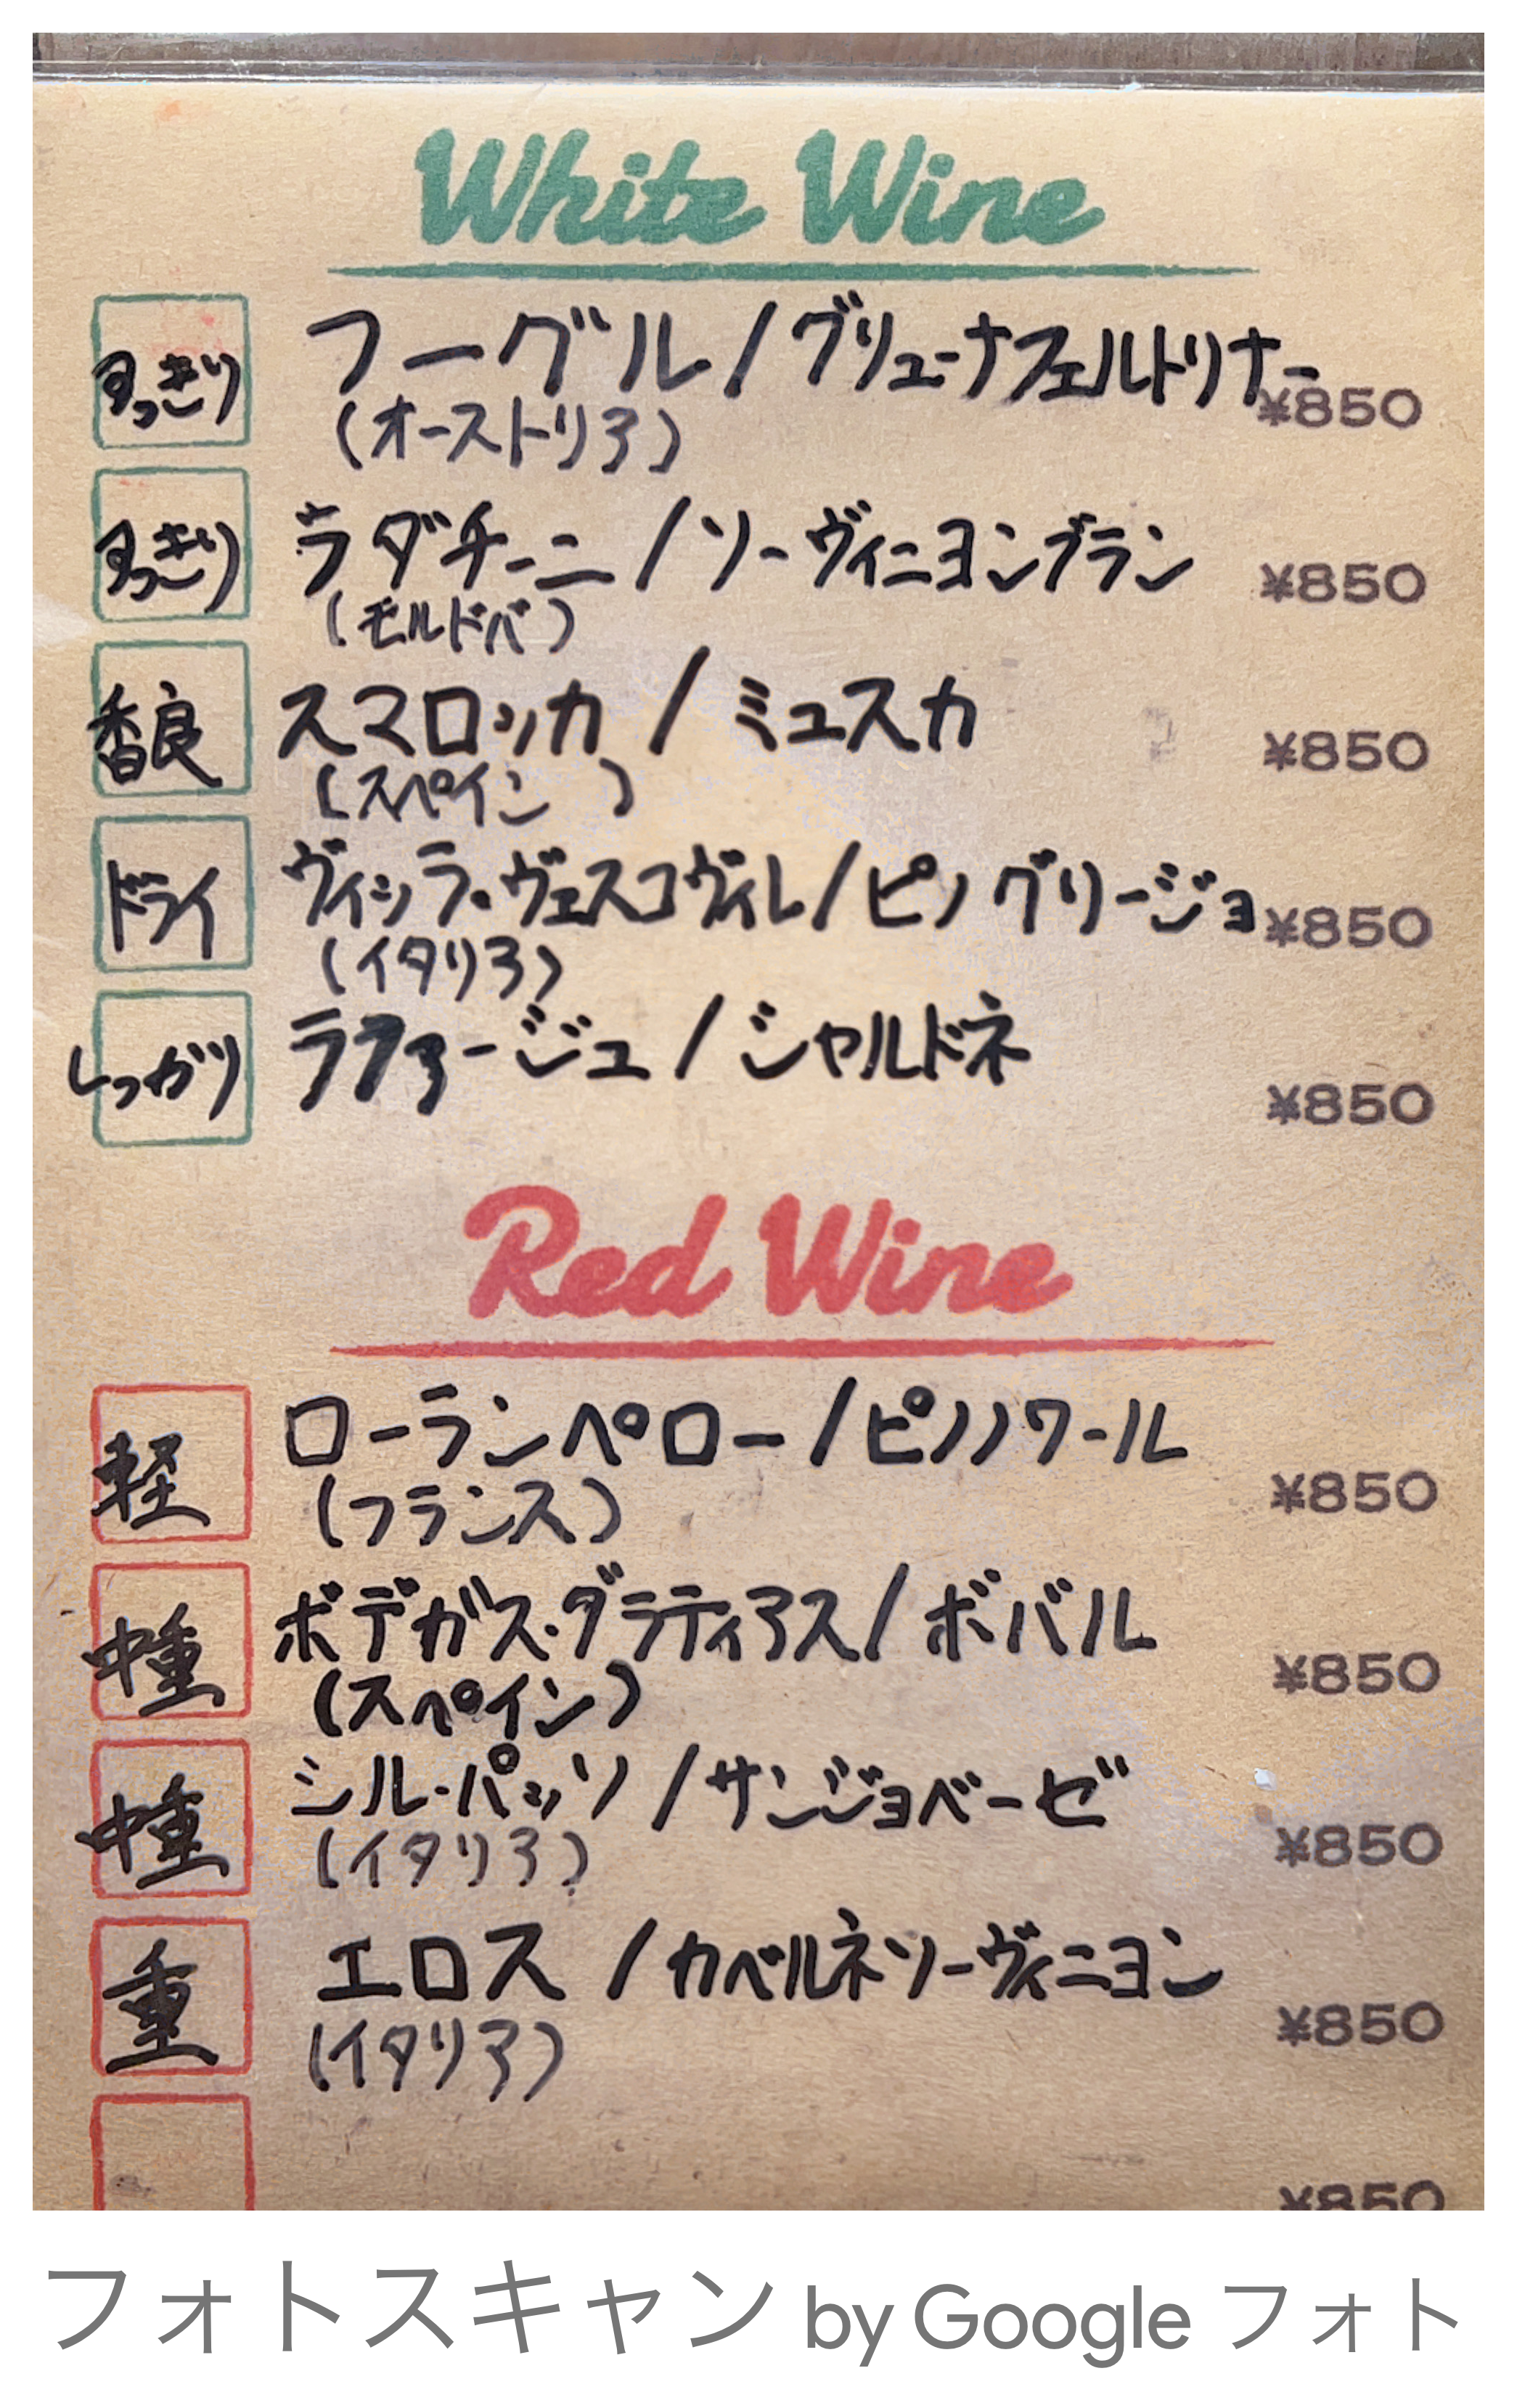 White Wine
すっきり フーグル/グリューナフェルトリナー ¥850
(オーストリア)
すっきり ラダチーニ/ソーヴィニヨンブラン ¥850
(モルドバ)
香良 スマロッカ/ミュスカ ¥850
(スペイン)
ドライ ヴィッラ・ヴェスコヴィレ/ピノグリージョ ¥850
(イタリア)
しっかり ラファージュ/シャルドネ ¥850
Red Wine
軽 ローランペロー/ピノノワール ¥850
(フランス)
中重 ボデガス・ダラティアス/ボバル ¥850
(スペイン)
中重 シル・パッソ/サンジョベーゼ ¥850
(イタリア)
重 エロス/カベルネソーヴィニヨン ¥850
(イタリア)
¥850
フォトスキャン by Google フォト